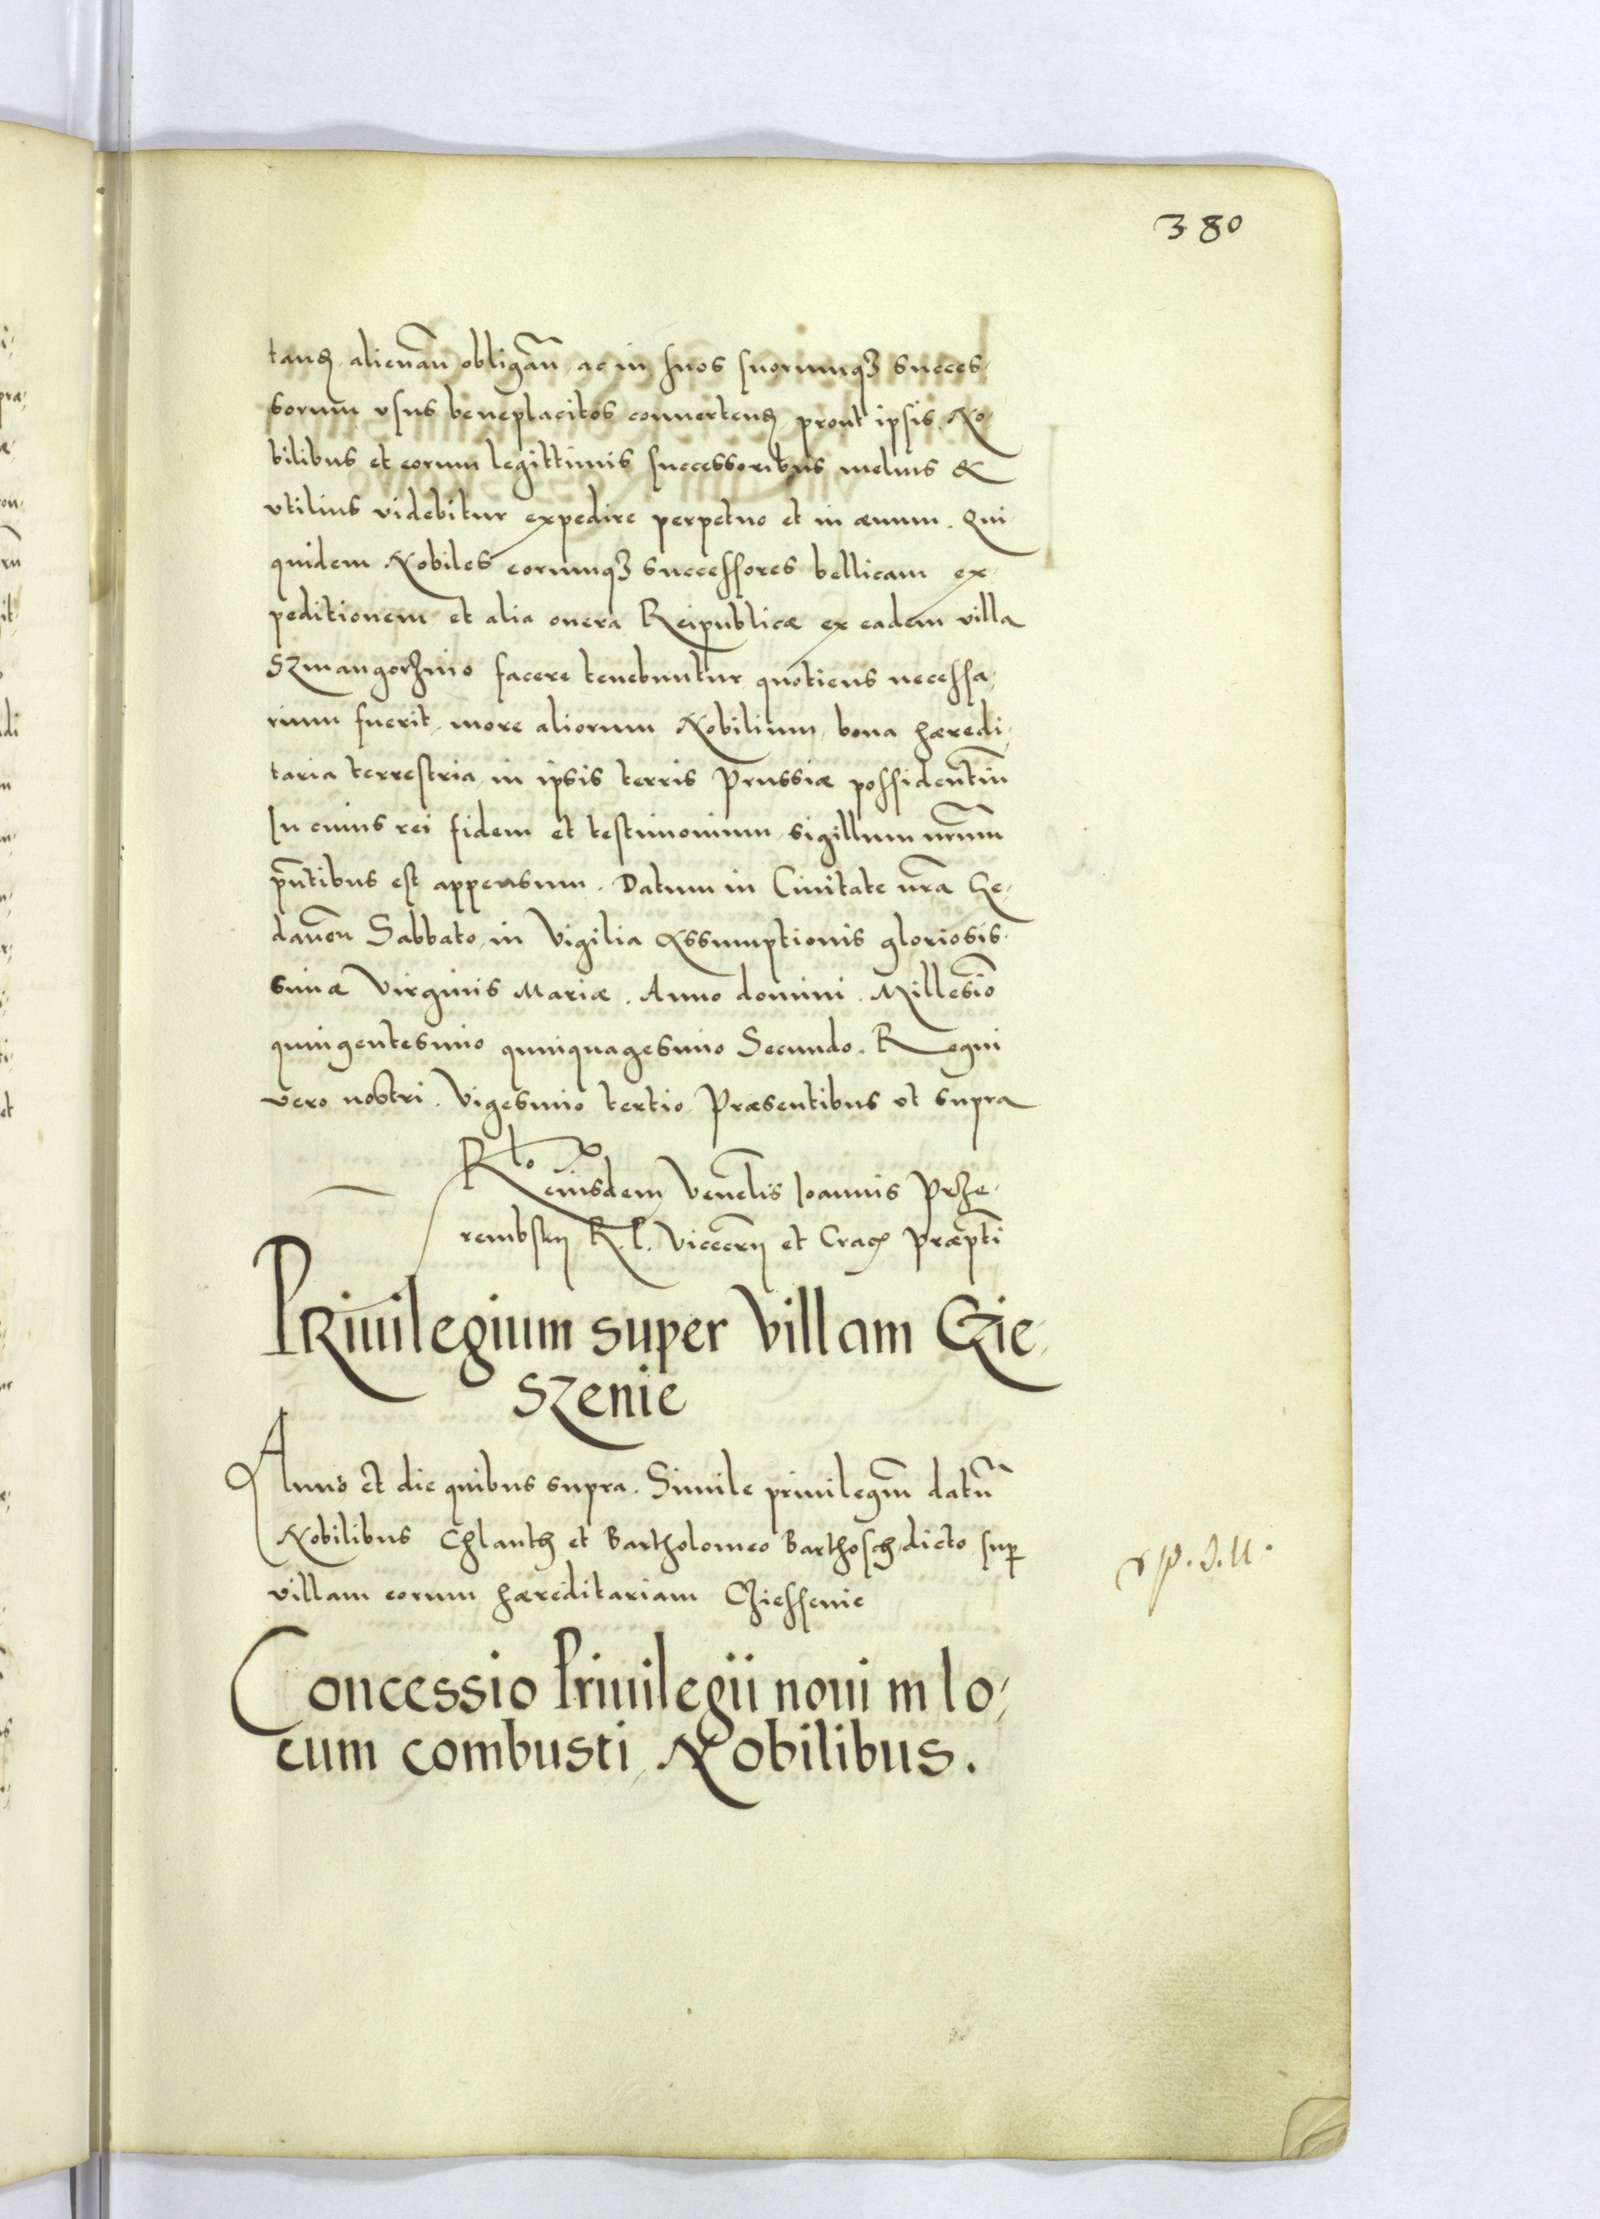 380
tand, alienan̄ obligan̄, ac in suos suorumq3 succes-
sorum usus beneplacitos conuertend, prout ipsis No-
bilibus et eorum legittimis successoribus melius &
vtilius videbitur expedire perpetuo et in æuum. Qui
quidem Nobiles eorumq3 successores bellicam ex-
peditionem et alia onera Reipublicæ ex eadem villa
Szmangorzino facere tenebuntur, quotiens necessa-
rium fuerit, more aliorum Nobilium, bona hæredi-
taria terrestria, in ipsis terris Prussiæ possidentiū
In cuius rei fidem et testimonium, sigillum nr̄um
pn̄tibus est appensum. Datum in Ciuitate nr̄a Ge-
danen̄ Sabbato, in Vigilia Assumptionis gloriosis-
simæ Virginis Mariæ. Anno domini. Millesīo
quingentesimo quinquagesimo Secundo. Regni
vero nostri. Vigesimo tertio. Præsentibus vt supra
Rlo eiusdem Venēlis Ioannis Prze-
rembskij R. P. Vicecn̄rij et Crac̄ Præp̄ti
Priuilegium super Villam Czie-
szenie
Anno et die quibus supra. Simile priuilegm̄ datū
Nobilibus Chlanth et Bartholomeo Barthosch dicto sup
villam eorum hæreditariam Cziessenie
Concessio Priuilegii noui in lo-
cum combusti, Nobilibus.